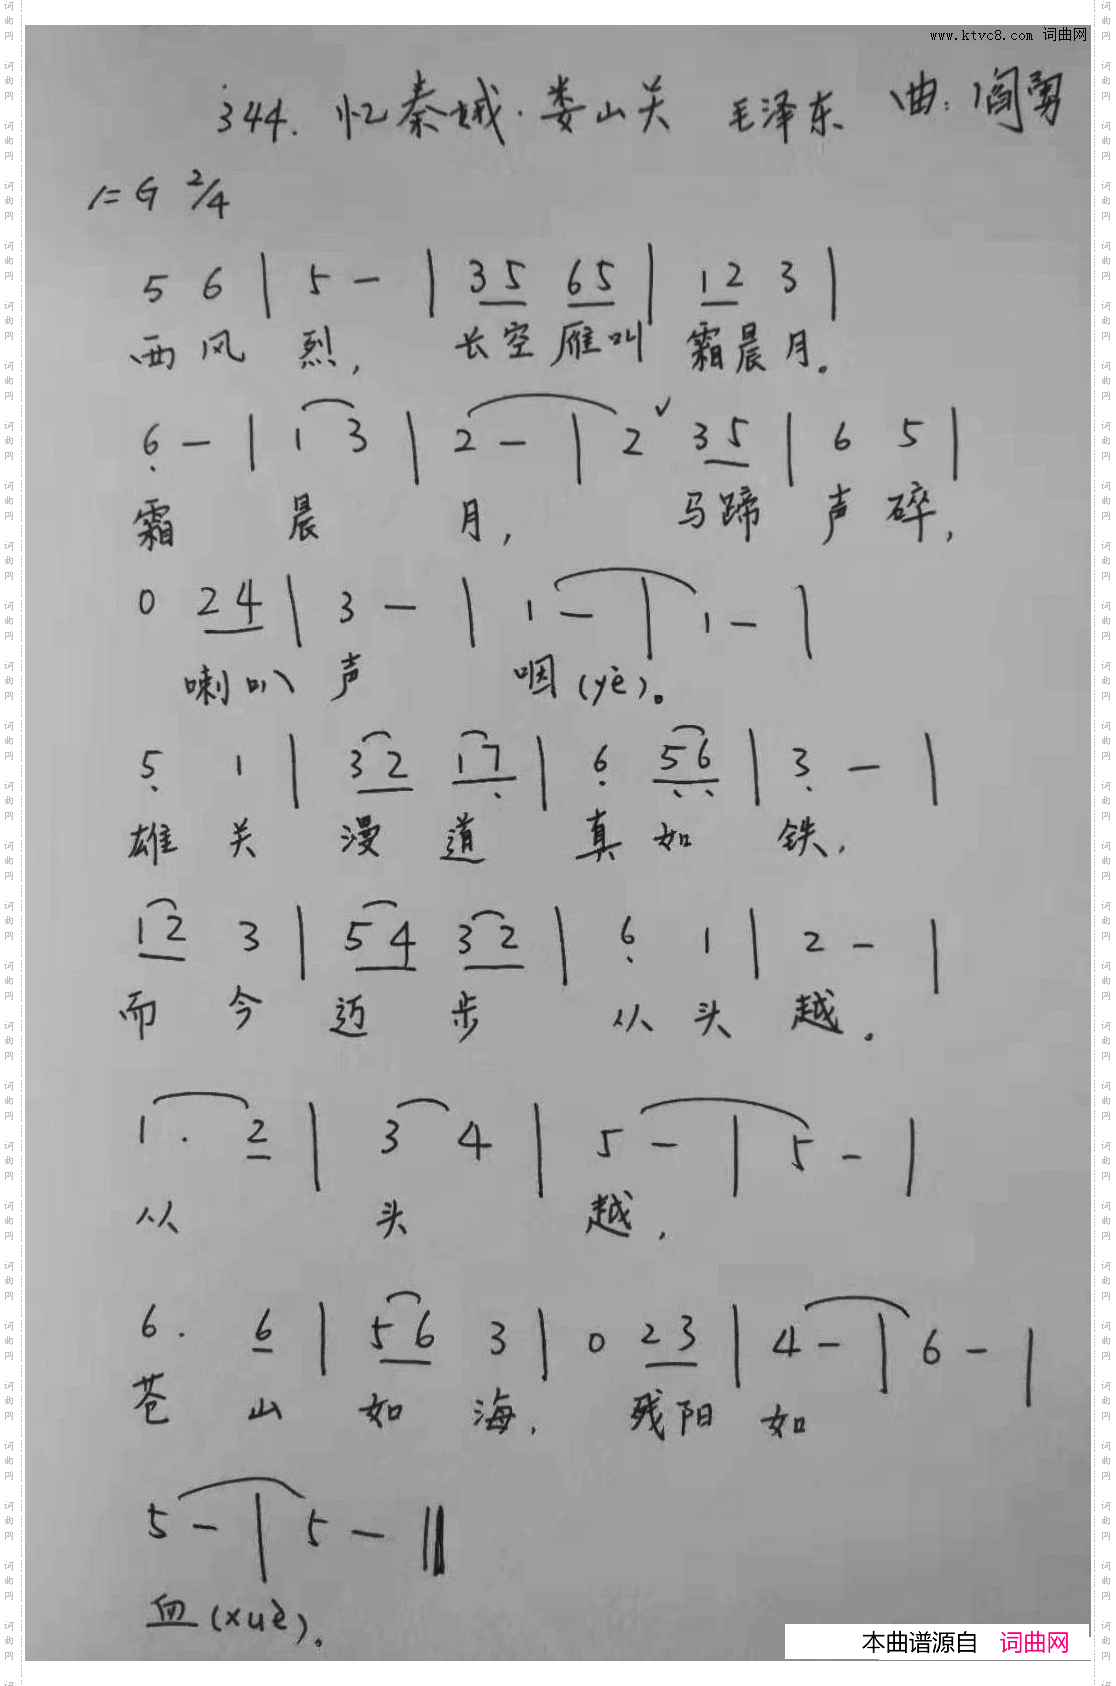 www.ktvc8.com 词曲网
344. 忆秦娥·娄山关 毛泽东 曲：阎勇
1=G 2/4
5 6 | 5 - | 35 65 | 12 3 |
西风 烈， 长空雁叫 霜晨月。
6 - | 1 3 | 2 - | 2 ✓ 35 | 6 5 |
霜 晨 月， 马蹄 声 碎，
0 24 | 3 - | 1 - | 1 - |
喇叭 声 咽(yè)。
5 1 | 32 17 | 6 56 | 3 - |
雄 关 漫 道 真 如 铁，
12 3 | 54 32 | 6 1 | 2 - |
而 今 迈 步 从 头 越。
1 · 2 | 3 4 | 5 - | 5 - |
从 头 越，
6 · 6 | 56 3 | 0 23 | 4 - | 6 - |
苍 山 如 海， 残阳 如
5 - | 5 - ‖
血(xuè)。
本曲谱源自 词曲网